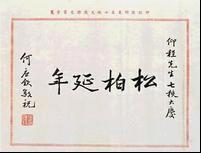 仰程先生七秩大慶
松柏延年
何應欽敬祝